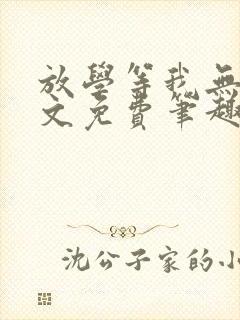 放學等我無
文免費筆趣
沈公子家的小